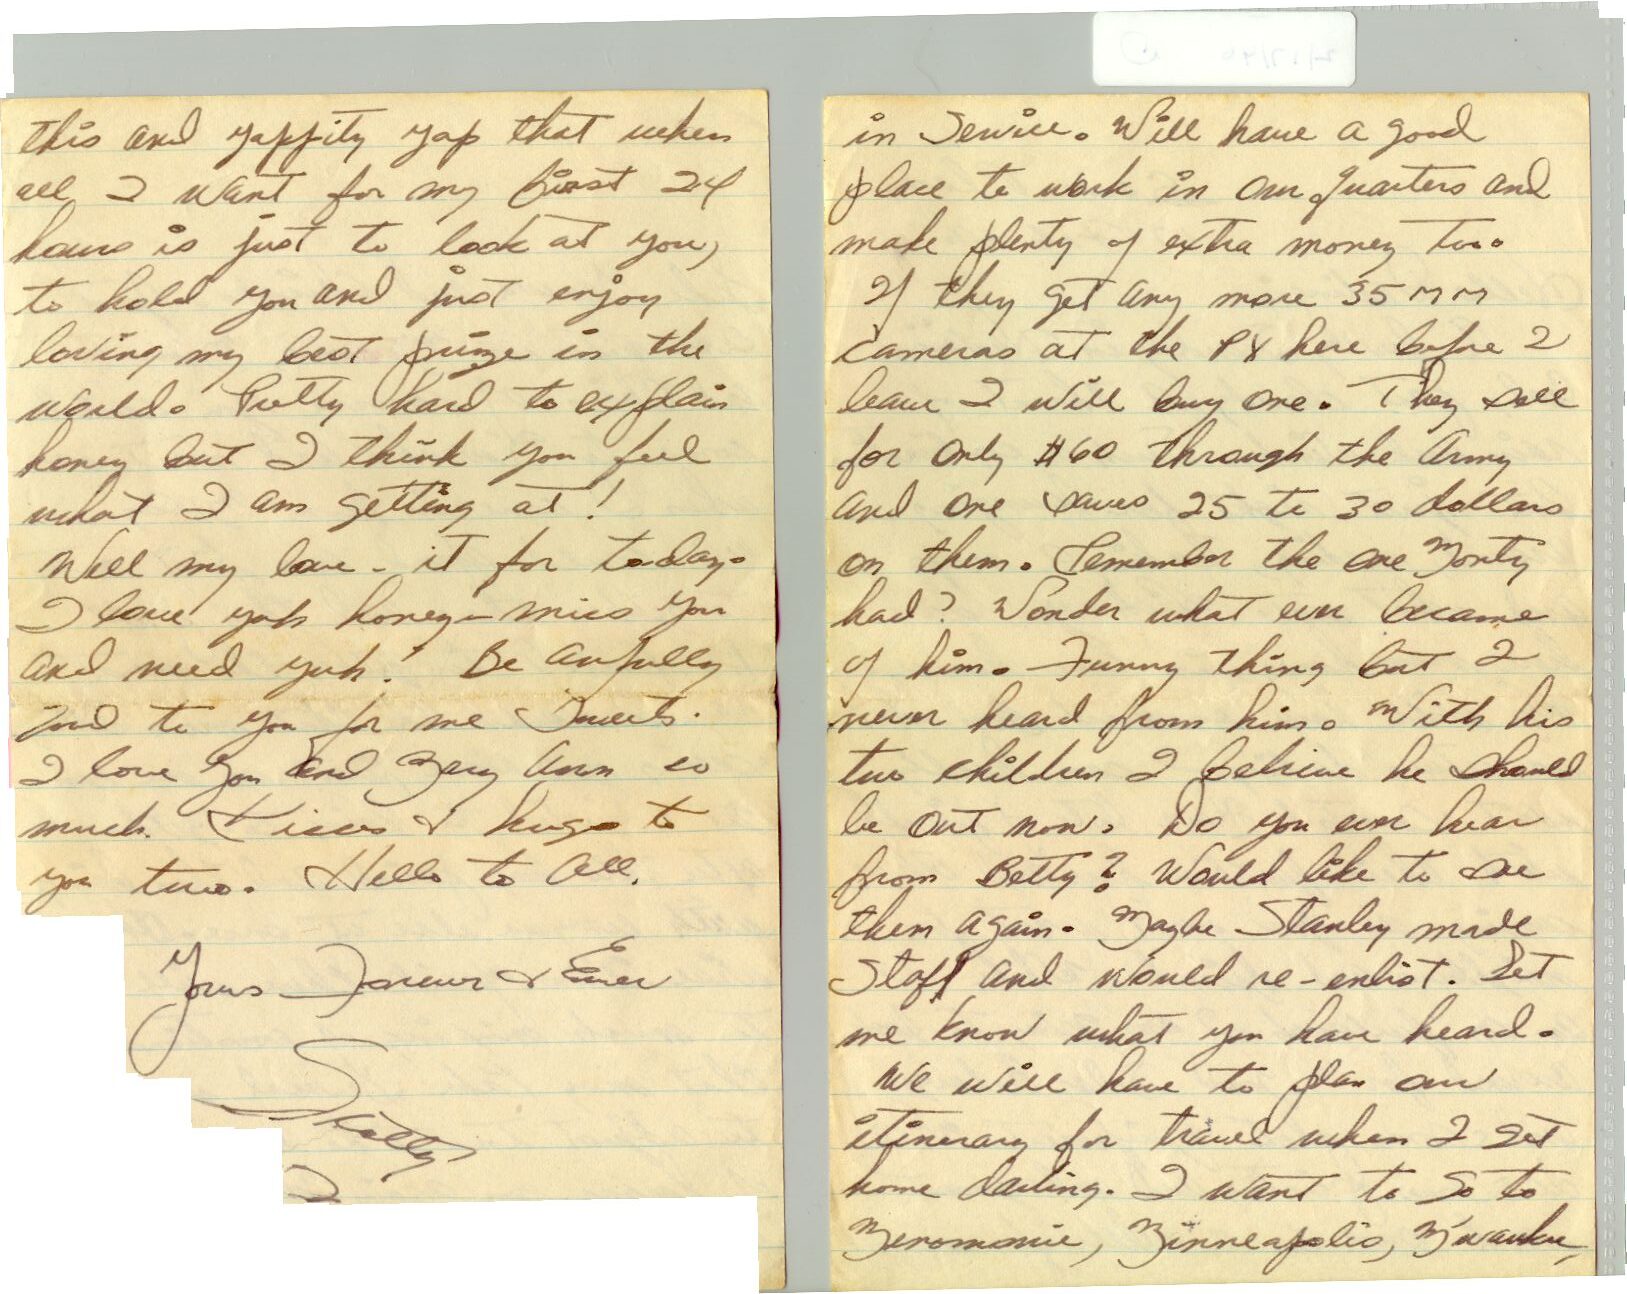 this and yappity yap that when
all I want for my first 24
hours is just to look at you,
to hold you and just enjoy
loving my best prize in the
world. Pretty hard to explain
honey but I think you feel
what I am getting at!
Well my love - it for today.
I love yuh honey - miss you
and need yuh! Be awfully
good to you for me Sweets.
I love you and Mary Ann so
much. Kisses & hugs to
you two. Hello to all.
Yours Forever & Ever
Scotty
in Service. Will have a good
place to work in our quarters and
make plenty of extra money too.
If they get any more 35 mm
cameras at the PX here before I
leave I will buy one. They sell
for only $60 through the Army
and one saves 25 to 30 dollars
on them. Remember the one Monty
had? Wonder what ever became
of him. Funny thing but I
never heard from him. With his
two children I believe he should
be out now. Do you ever hear
from Betty? Would like to see
them again. Maybe Stanley made
Staff and would re-enlist. Let
me know what you have heard.
We will have to plan our
itinerary for travel when I get
home darling. I want to go to
Menomonie, Minneapolis,